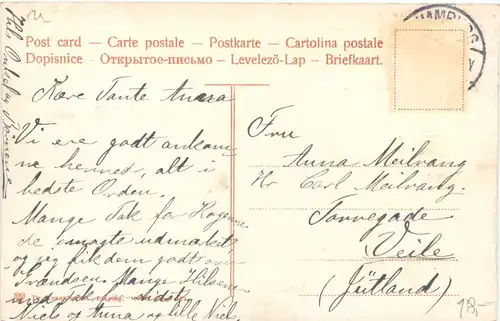 Post card – Carte postale – Postkarte – Cartolina postale
Dopisnice – Открытое-письмо – Levelezö-Lap – Briefkaart.
HAMBURG
Kære Tante Anna
Vi ere godt ankom
ne hennes, alt i
bedste Orden.
Mange Tak for Kagerne
de smagte udmærket,
og jeg fik dem godt over
Grændsen. Mange Hilsen
Niels og Anna og lille Niels.
Hils Onkel og Børnene
Fru
Anna Meilvang
Hr Carl Meilvang.
Torvegade
Veile
(Jütland)
18,-